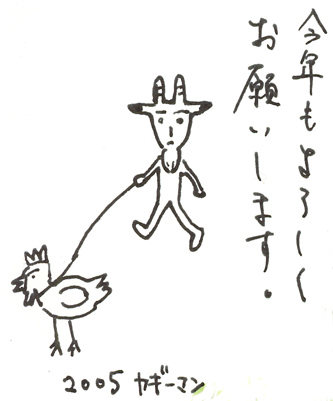 今年もよろしく
お願いします。
2005 ヤギーマン